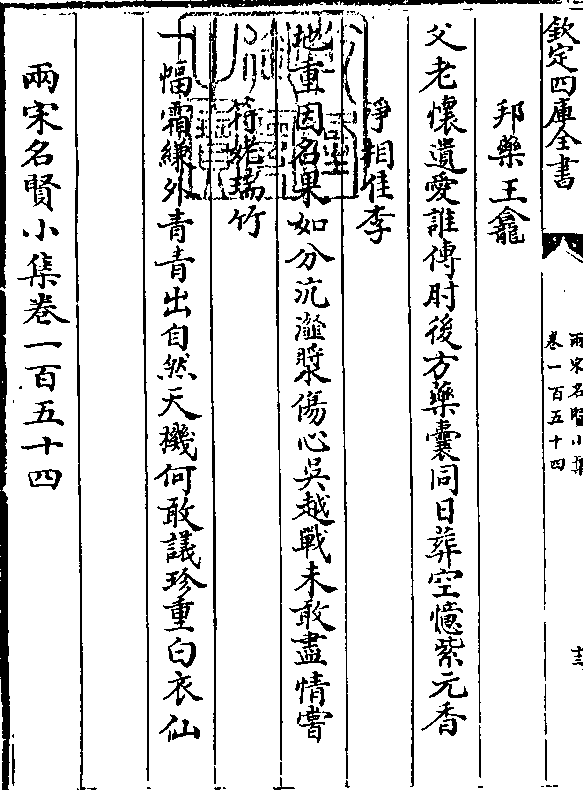 欽定四庫全書
兩宋名賢小集
卷一百五十四
十三
邦藥王龕
父老懷遺愛誰傳肘後方藥囊同日葬空憶紫元香
淨相佳李
地重因名果如分沆瀣漿傷心吳越戰未敢盡情嘗
符姥瑞竹
一幅霜縑外青青出自然天機何敢議珍重白衣仙
兩宋名賢小集卷一百五十四